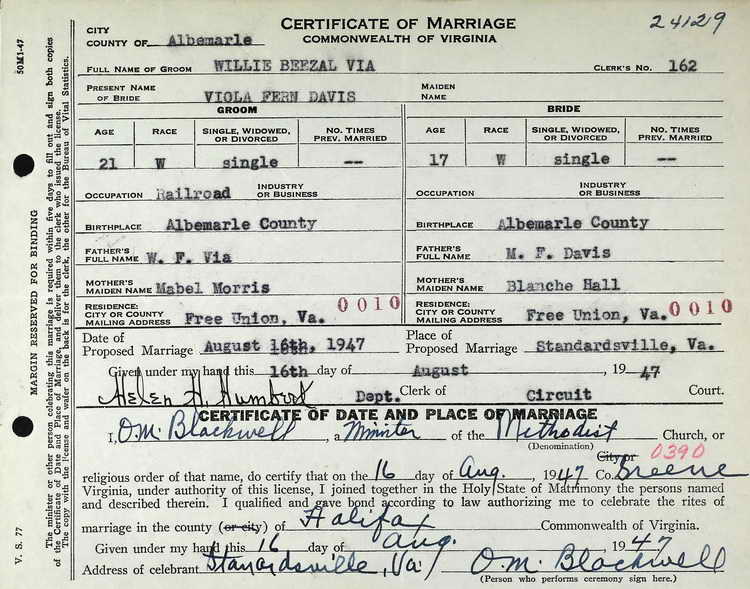 CERTIFICATE OF MARRIAGE
COMMONWEALTH OF VIRGINIA
24129
CITY
COUNTY OF Albemarle
FULL NAME OF GROOM WILLIE BEEZAL VIA CLERK'S NO. 162
PRESENT NAME OF BRIDE VIOLA FERN DAVIS MAIDEN NAME
GROOM BRIDE
AGE RACE SINGLE, WIDOWED, OR DIVORCED NO. TIMES PREV. MARRIED AGE RACE SINGLE, WIDOWED, OR DIVORCED NO. TIMES PREV. MARRIED
21 W single -- 17 W single --
OCCUPATION Railroad INDUSTRY OR BUSINESS OCCUPATION INDUSTRY OR BUSINESS
BIRTHPLACE Albemarle County BIRTHPLACE Albemarle County
FATHER'S FULL NAME W. F. Via FATHER'S FULL NAME M. F. Davis
MOTHER'S MAIDEN NAME Mabel Morris MOTHER'S MAIDEN NAME Blanche Hall
RESIDENCE: CITY OR COUNTY MAILING ADDRESS Free Union, Va. 0010 RESIDENCE: CITY OR COUNTY MAILING ADDRESS Free Union, Va. 0010
Date of Proposed Marriage August 16th, 1947 Place of Proposed Marriage Standardsville, Va.
Given under my hand this 16th day of August, 1947
Helen H. Humbert Dept. Clerk of Circuit Court.
CERTIFICATE OF DATE AND PLACE OF MARRIAGE
I, O.M. Blackwell, a Minister of the Methodist Church, or
(Denomination)
City or 0390
religious order of that name, do certify that on the 16 day of Aug, 1947 Co. Greene
Virginia, under authority of this license, I joined together in the Holy State of Matrimony the persons named
and described therein. I qualified and gave bond according to law authorizing me to celebrate the rites of
marriage in the county (or city) of Halifax Commonwealth of Virginia.
Given under my hand this 16 day of Aug. 1947
Address of celebrant Stanardsville, Va. O.M. Blackwell
(Person who performs ceremony sign here.)
50M1-47
MARGIN RESERVED FOR BINDING
V. S. 77
The minister or other person celebrating this marriage is required within five days to fill out and sign both copies
of the Certificate of Date and Place of Marriage, and deliver them to the clerk who issued the license.
The copy with the license and waiver on the back is for the clerk, the other for the Bureau of Vital Statistics.